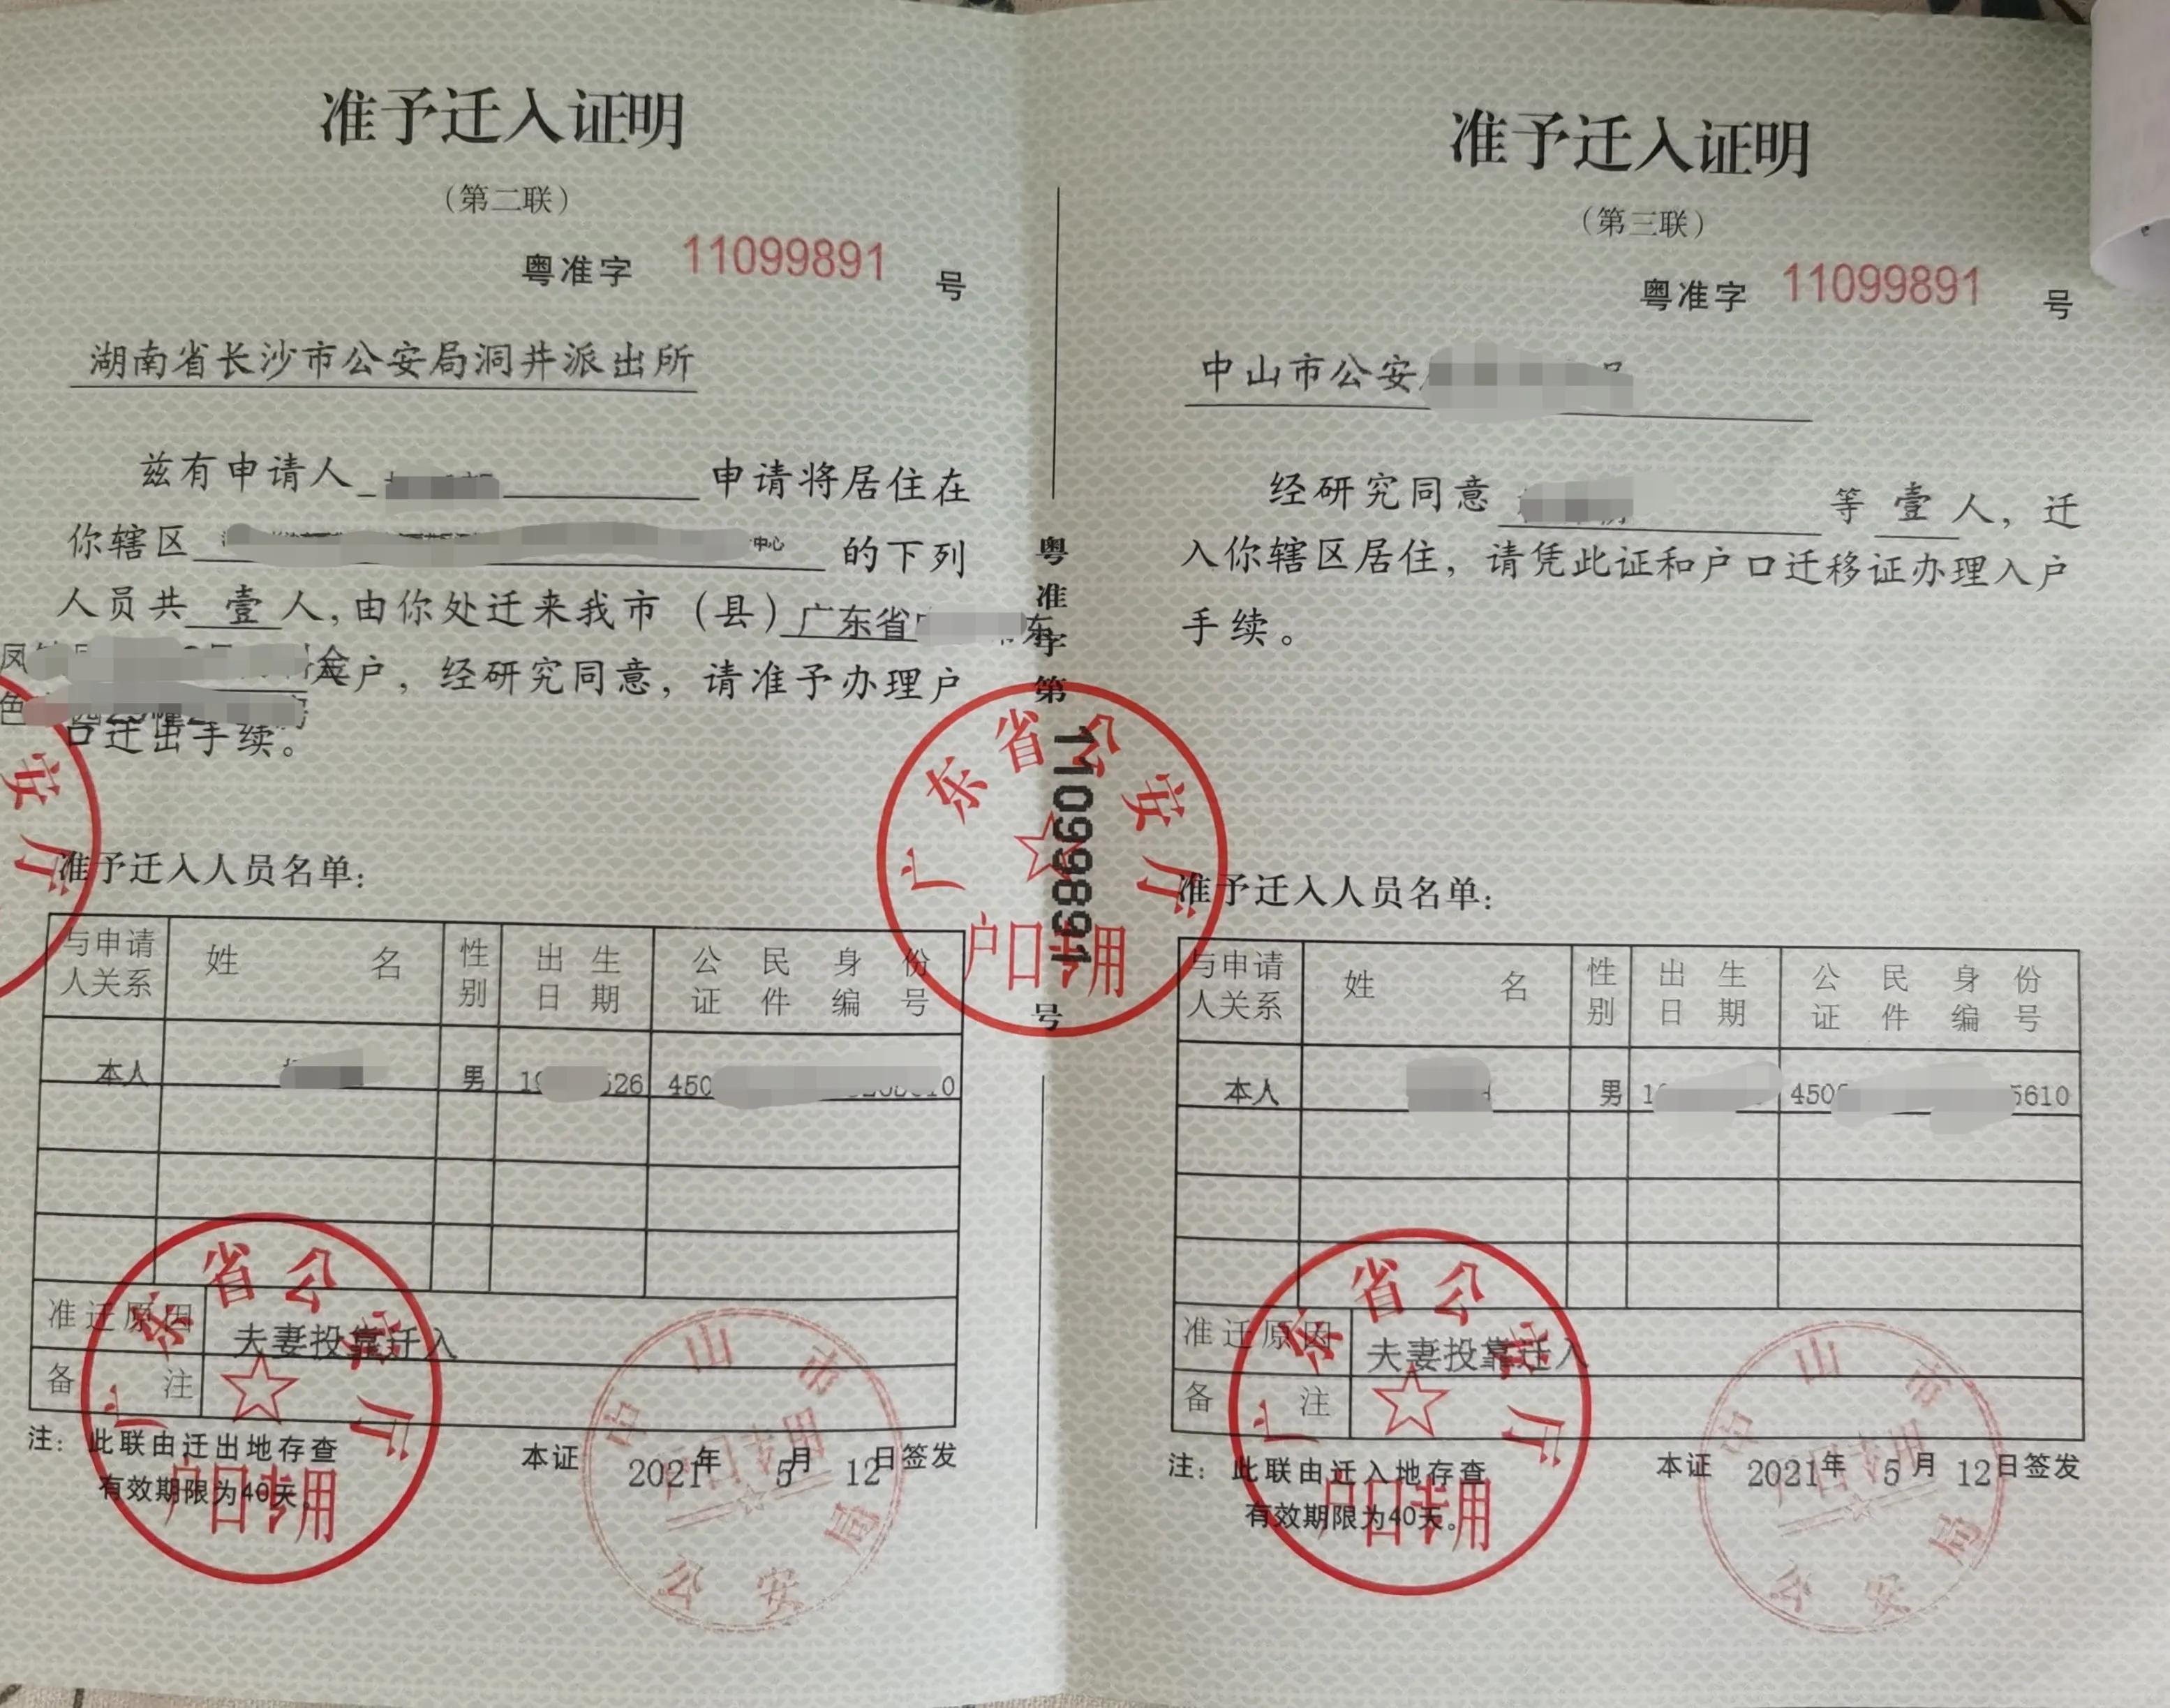 准予迁入证明
（第二联）
粤准字 11099891 号
湖南省长沙市公安局洞井派出所
兹有申请人 申请将居住在
你辖区 中心 的下列
人员共 壹 人，由你处迁来我市（县）广东省 东
凤
入户，经研究同意，请准予办理户
色
口迁出手续。
准予迁入人员名单：
与申请人关系 姓名 性别 出生日期 公民身份证件编号
本人 男 19 526 450 10
准迁原因 夫妻投靠迁入
备注
注：此联由迁出地存查
有效期限为40天。
本证 2021年 5月 12日签发
广东省公安厅
户口专用
中山市公安局
户口专用
粤准字第 11099891 号
广东省公安厅
户口专用
安厅
准予迁入证明
（第三联）
粤准字 11099891 号
中山市公安
经研究同意 等 壹 人，迁
入你辖区居住，请凭此证和户口迁移证办理入户
手续。
准予迁入人员名单：
与申请人关系 姓名 性别 出生日期 公民身份证件编号
本人 男 1 450 5610
准迁原因 夫妻投靠迁入
备注
注：此联由迁入地存查
有效期限为40天。
本证 2021年 5月 12日签发
广东省公安厅
户口专用
中山市公安局
户口专用